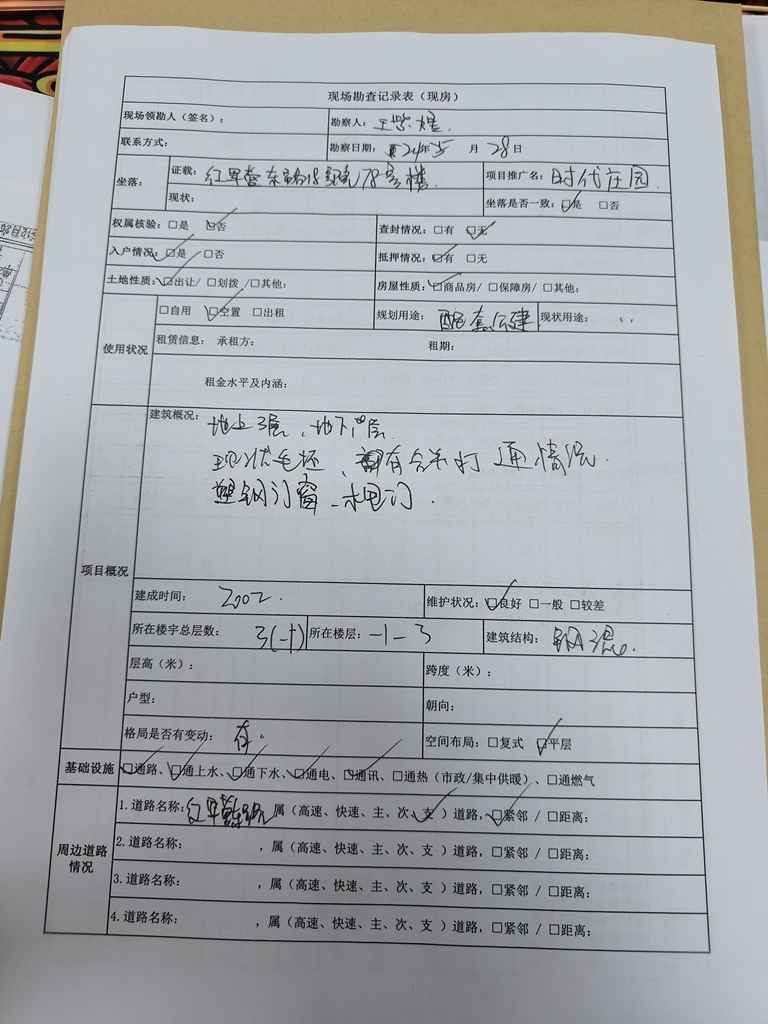 现场勘查记录表（现房）
现场领勘人（签名）： 勘察人：
联系方式： 勘察日期：24年5月28日
坐落： 证载：红军营东路18号院178号楼 项目推广名：时代庄园
现状： 坐落是否一致：☑是 □否
权属核验：□是 ☑否 查封情况：□有 ☑无
入户情况：☑是 □否 抵押情况：☑有 □无
土地性质：☑出让/ □划拨 /□其他: 房屋性质：☑商品房/ □保障房/ □其他:
使用状况 □自用 ☑空置 □出租 规划用途：配套公建 现状用途：
租赁信息： 承租方： 租期：
租金水平及内涵：
项目概况 建筑概况：地上3层、地下1层
现状毛坯、有合并打通情况.
塑钢门窗、木电门.
建成时间： 2002. 维护状况：☑良好 □一般 □较差
所在楼宇总层数： 3(-1) 所在楼层：-1-3 建筑结构： 钢混
层高（米）： 跨度（米）：
户型： 朝向：
格局是否有变动： 有. 空间布局：□复式 ☑平层
基础设施 ☑通路、☑通上水、☑通下水、☑通电、☑通讯、□通热（市政/集中供暖）、□通燃气
周边道路情况 1.道路名称：红军营东路，属（高速、快速、主、次、支✓）道路，☑紧邻 / □距离:
2.道路名称： ，属（高速、快速、主、次、支 ）道路，□紧邻 / □距离:
3.道路名称： ，属（高速、快速、主、次、支 ）道路，□紧邻 / □距离:
4.道路名称： ，属（高速、快速、主、次、支 ）道路，□紧邻 / □距离: